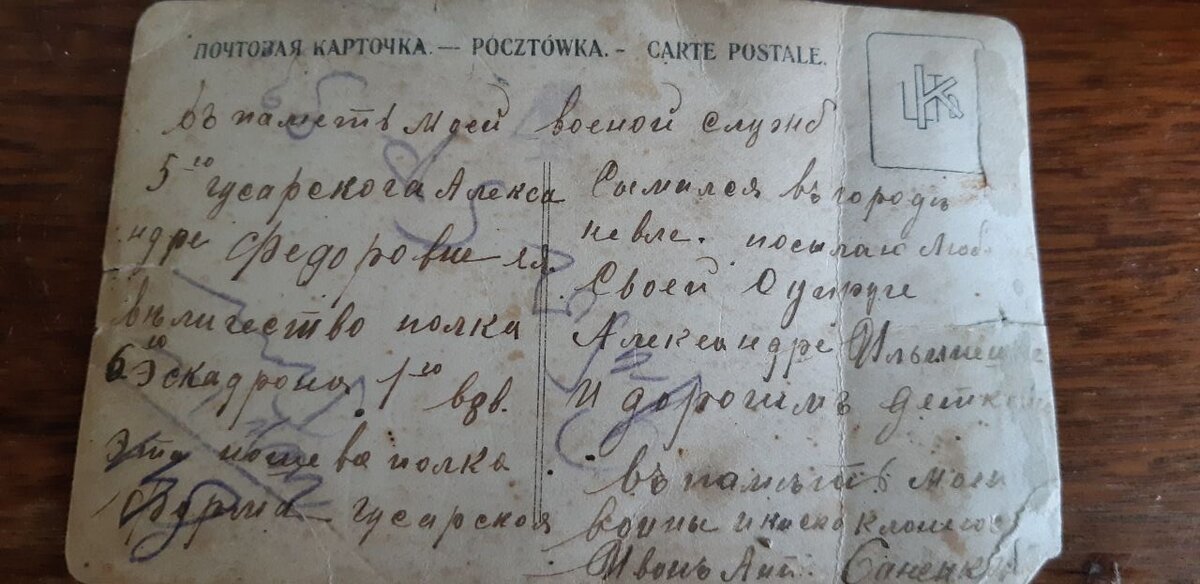 ПОЧТОВАЯ КАРТОЧКА. — POCZTÓWKA. - CARTE POSTALE.
въ паметь моей военой служб
5го гусарскога Алекса
ндре Федоровне
величество полка
6го Эскадрона 1го взв.
это нашева полка
Форма гусарской
Сымился въ городе
невле. посылаю
Своей Супруге
Александре
И дорогимъ деткам
въ паметь моей
войны и
Иванъ